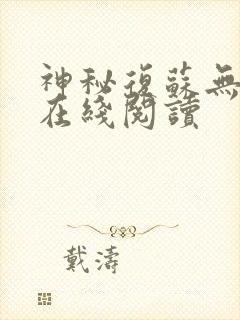 神秘復蘇無
在綫閱讀
戴濤